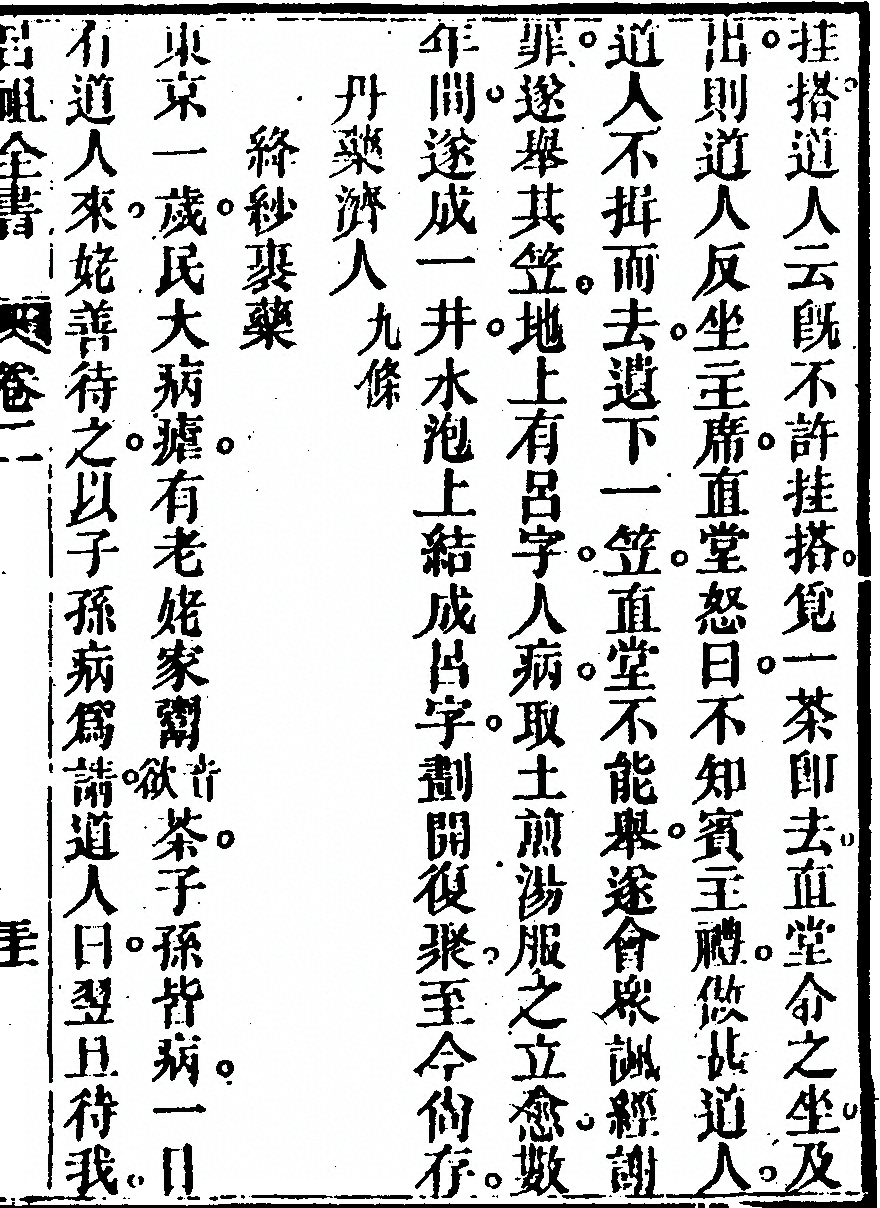 挂搭道人云旣不許挂搭覓一茶卽去直堂命之坐及
出則道人反坐主席直堂怒曰不知賓主禮做甚道人
道人不揖而去遺下一笠直堂不能舉遂會衆諷經謝
罪遂舉其笠地上有呂字人病取土煎湯服之立愈數
年間遂成一井水泡上結成呂字劃開復聚至今尙存
丹藥濟人九條
絳紗裹藥
東京一歲民大病瘧有老姥家鬻音欲茶子孫皆病一日
有道人來姥善待之以子孫病爲請道人曰翌旦待我
呂祖全書 卷二